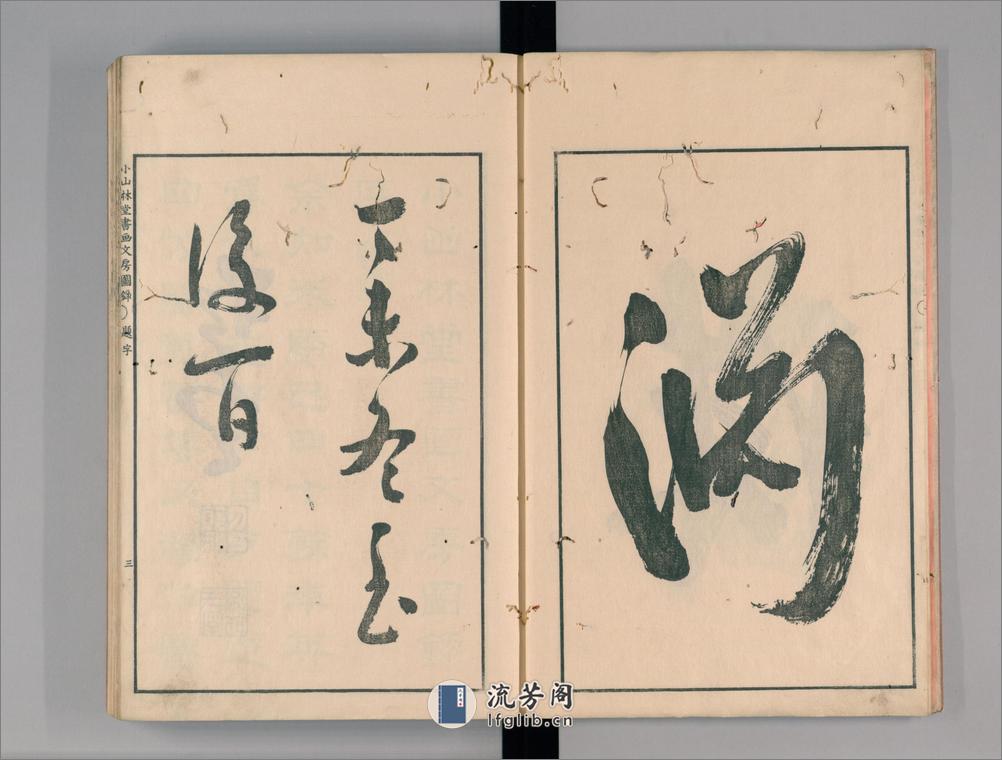 丁未冬至
後一日
小山林堂書画文房圖録 題字
三
流芳阁
lfglib.cn